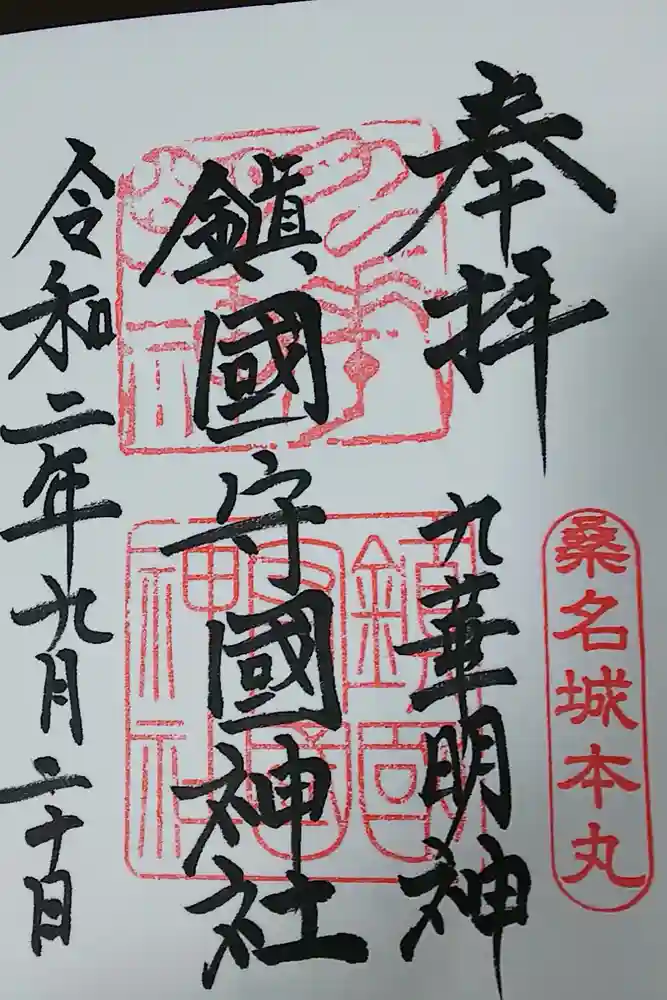 桑名城本丸
奉拝
九華明神
鎮國守國神社
令和二年九月二十日